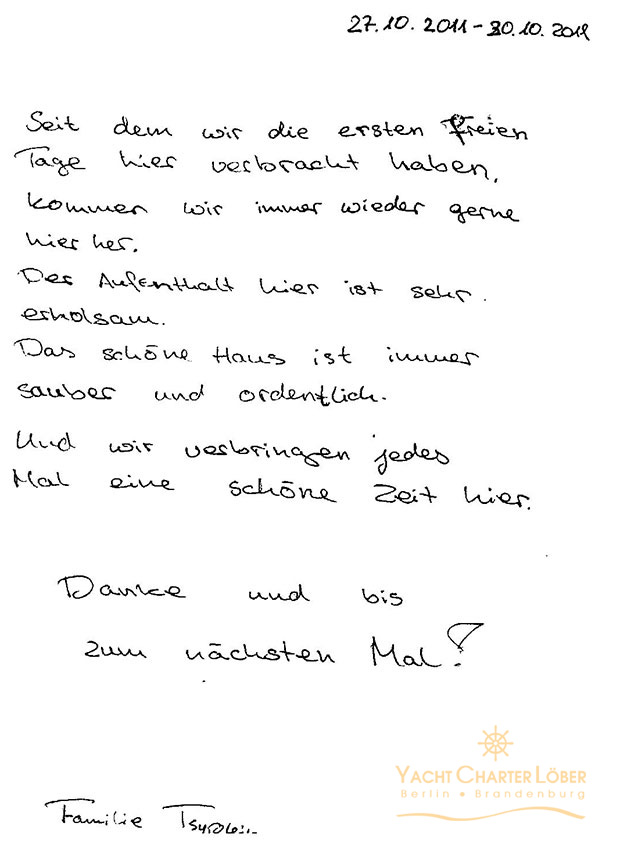 27.10.2011 - 30.10.2011
Seit dem wir die ersten freien
Tage hier verbracht haben,
kommen wir immer wieder gerne
hier her.
Der Aufenthalt hier ist sehr
erholsam.
Das schöne Haus ist immer
sauber und ordentlich.
Und wir verbringen jedes
Mal eine schöne Zeit hier.
Danke und bis
zum nächsten Mal!
YACHT CHARTER LÖBER
Berlin • Brandenburg
Familie